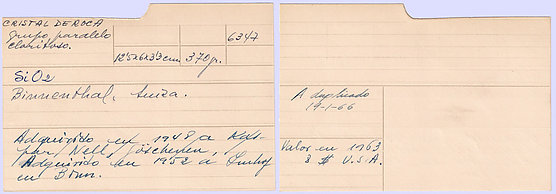 CRISTAL DE ROCA
Grupo paralelo
cloritoso.
12'5x6x3'3 cm.
370 gr.
6347
SiO2
Binnenthal. Suiza.
Adquirido en 1948 a Kas-
par Nell, Göschenen,
Adquirido en 1952 a Imhof
en Binn.
A duplicado
19-1-66
Valor en 1963
8 $ U.S.A.